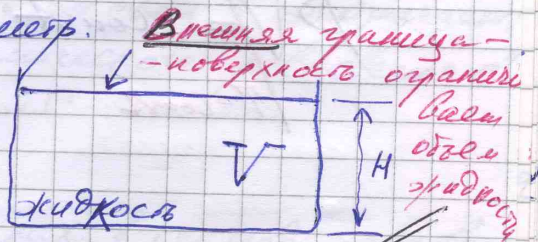 метр. Внешняя граница -
- поверхность ограничи
вает
объем
жидкости
V
H
жидкость